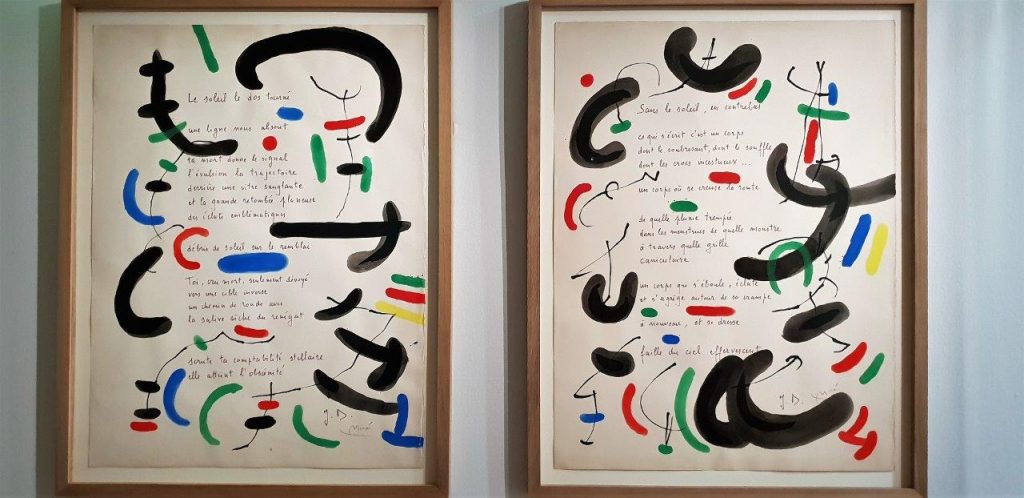 Le soleil le dos tourné
une ligne nous absout
ta mort donne le signal
l'évulsion la trajectoire
derrière une vitre sanglante
et la grande retombée pluvieuse
des éclats emblématiques
débris de soleil sur le remblai
Toi, ou mort, seulement dévoyé
vers une cible inverse
un chemin de ronde avec
la salive sèche du renégat
scrute ta comptabilité stellaire
elle atteint l'obscénité
J. D.
Miró
Sans le soleil, en contrebas
ce qui s'écrit c'est un corps
dont le soubresaut, dont le souffle
dont les crocs incestueux...
un corps où se creuse la route
de quelle plume trempée
dans les menstrues de quelle monstre
à travers quelle grille
caniculaire
un corps qui s'éboule, éclate
et s'agrège autour de sa crampe
à nouveau, et se dresse
faille du ciel effervescent
J. D.
Miró